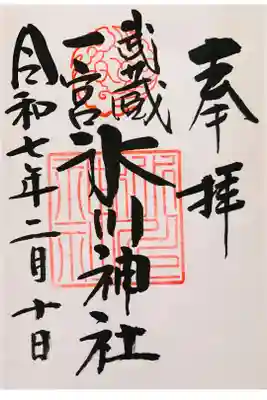 奉拝
武蔵
一宮
氷川神社
令和七年二月十日